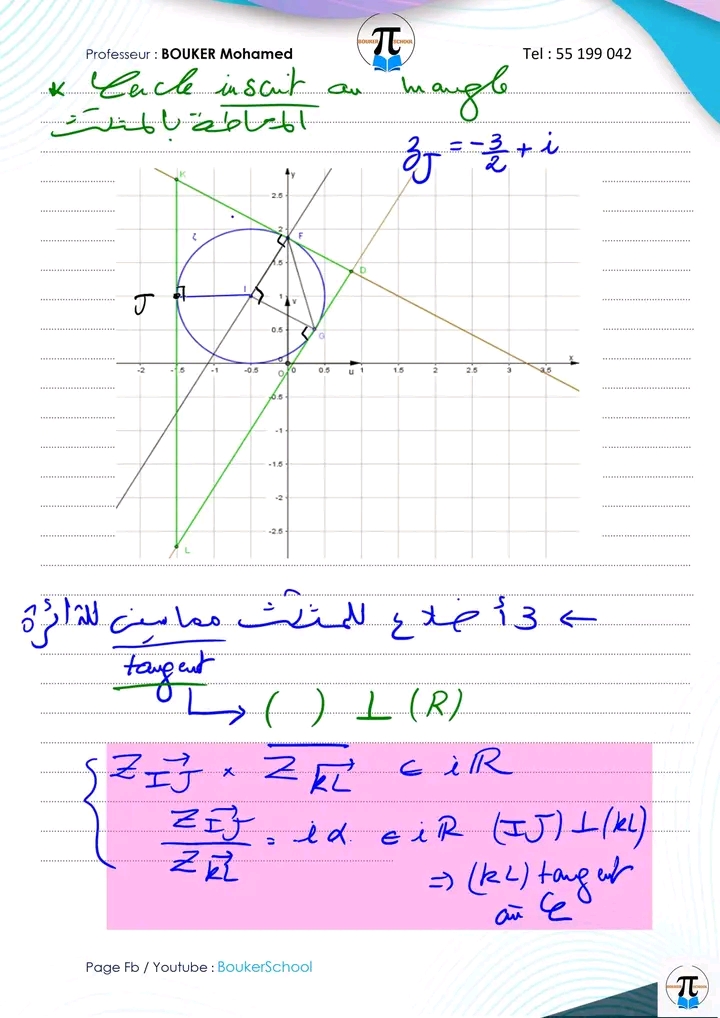 BOUKER SCHOOL
π
Professeur : BOUKER Mohamed
Tel : 55 199 042
* Cercle inscrit au triangle
المحاطة بالمثلث
z_J = -3/2 + i
K
y
2.5
2
F
ζ
1.5
D
J
I
1
v
0.5
G
x
-2 -1.5 -1 -0.5 O 0 0.5 u 1 1.5 2 2.5 3 3.5
-0.5
-1
-1.5
-2
-2.5
L
← 3 أضلاع للمثلث مماسين للدائرة
tangent
↳ ( ) ⊥ (R)
Z_IJ⃗ × \overline{Z_KL⃗} ∈ iR
Z_IJ⃗ / Z_KL⃗ = iα ∈ iR (IJ) ⊥ (KL)
⇒ (KL) tangent
au C
Page Fb / Youtube : BoukerSchool
π